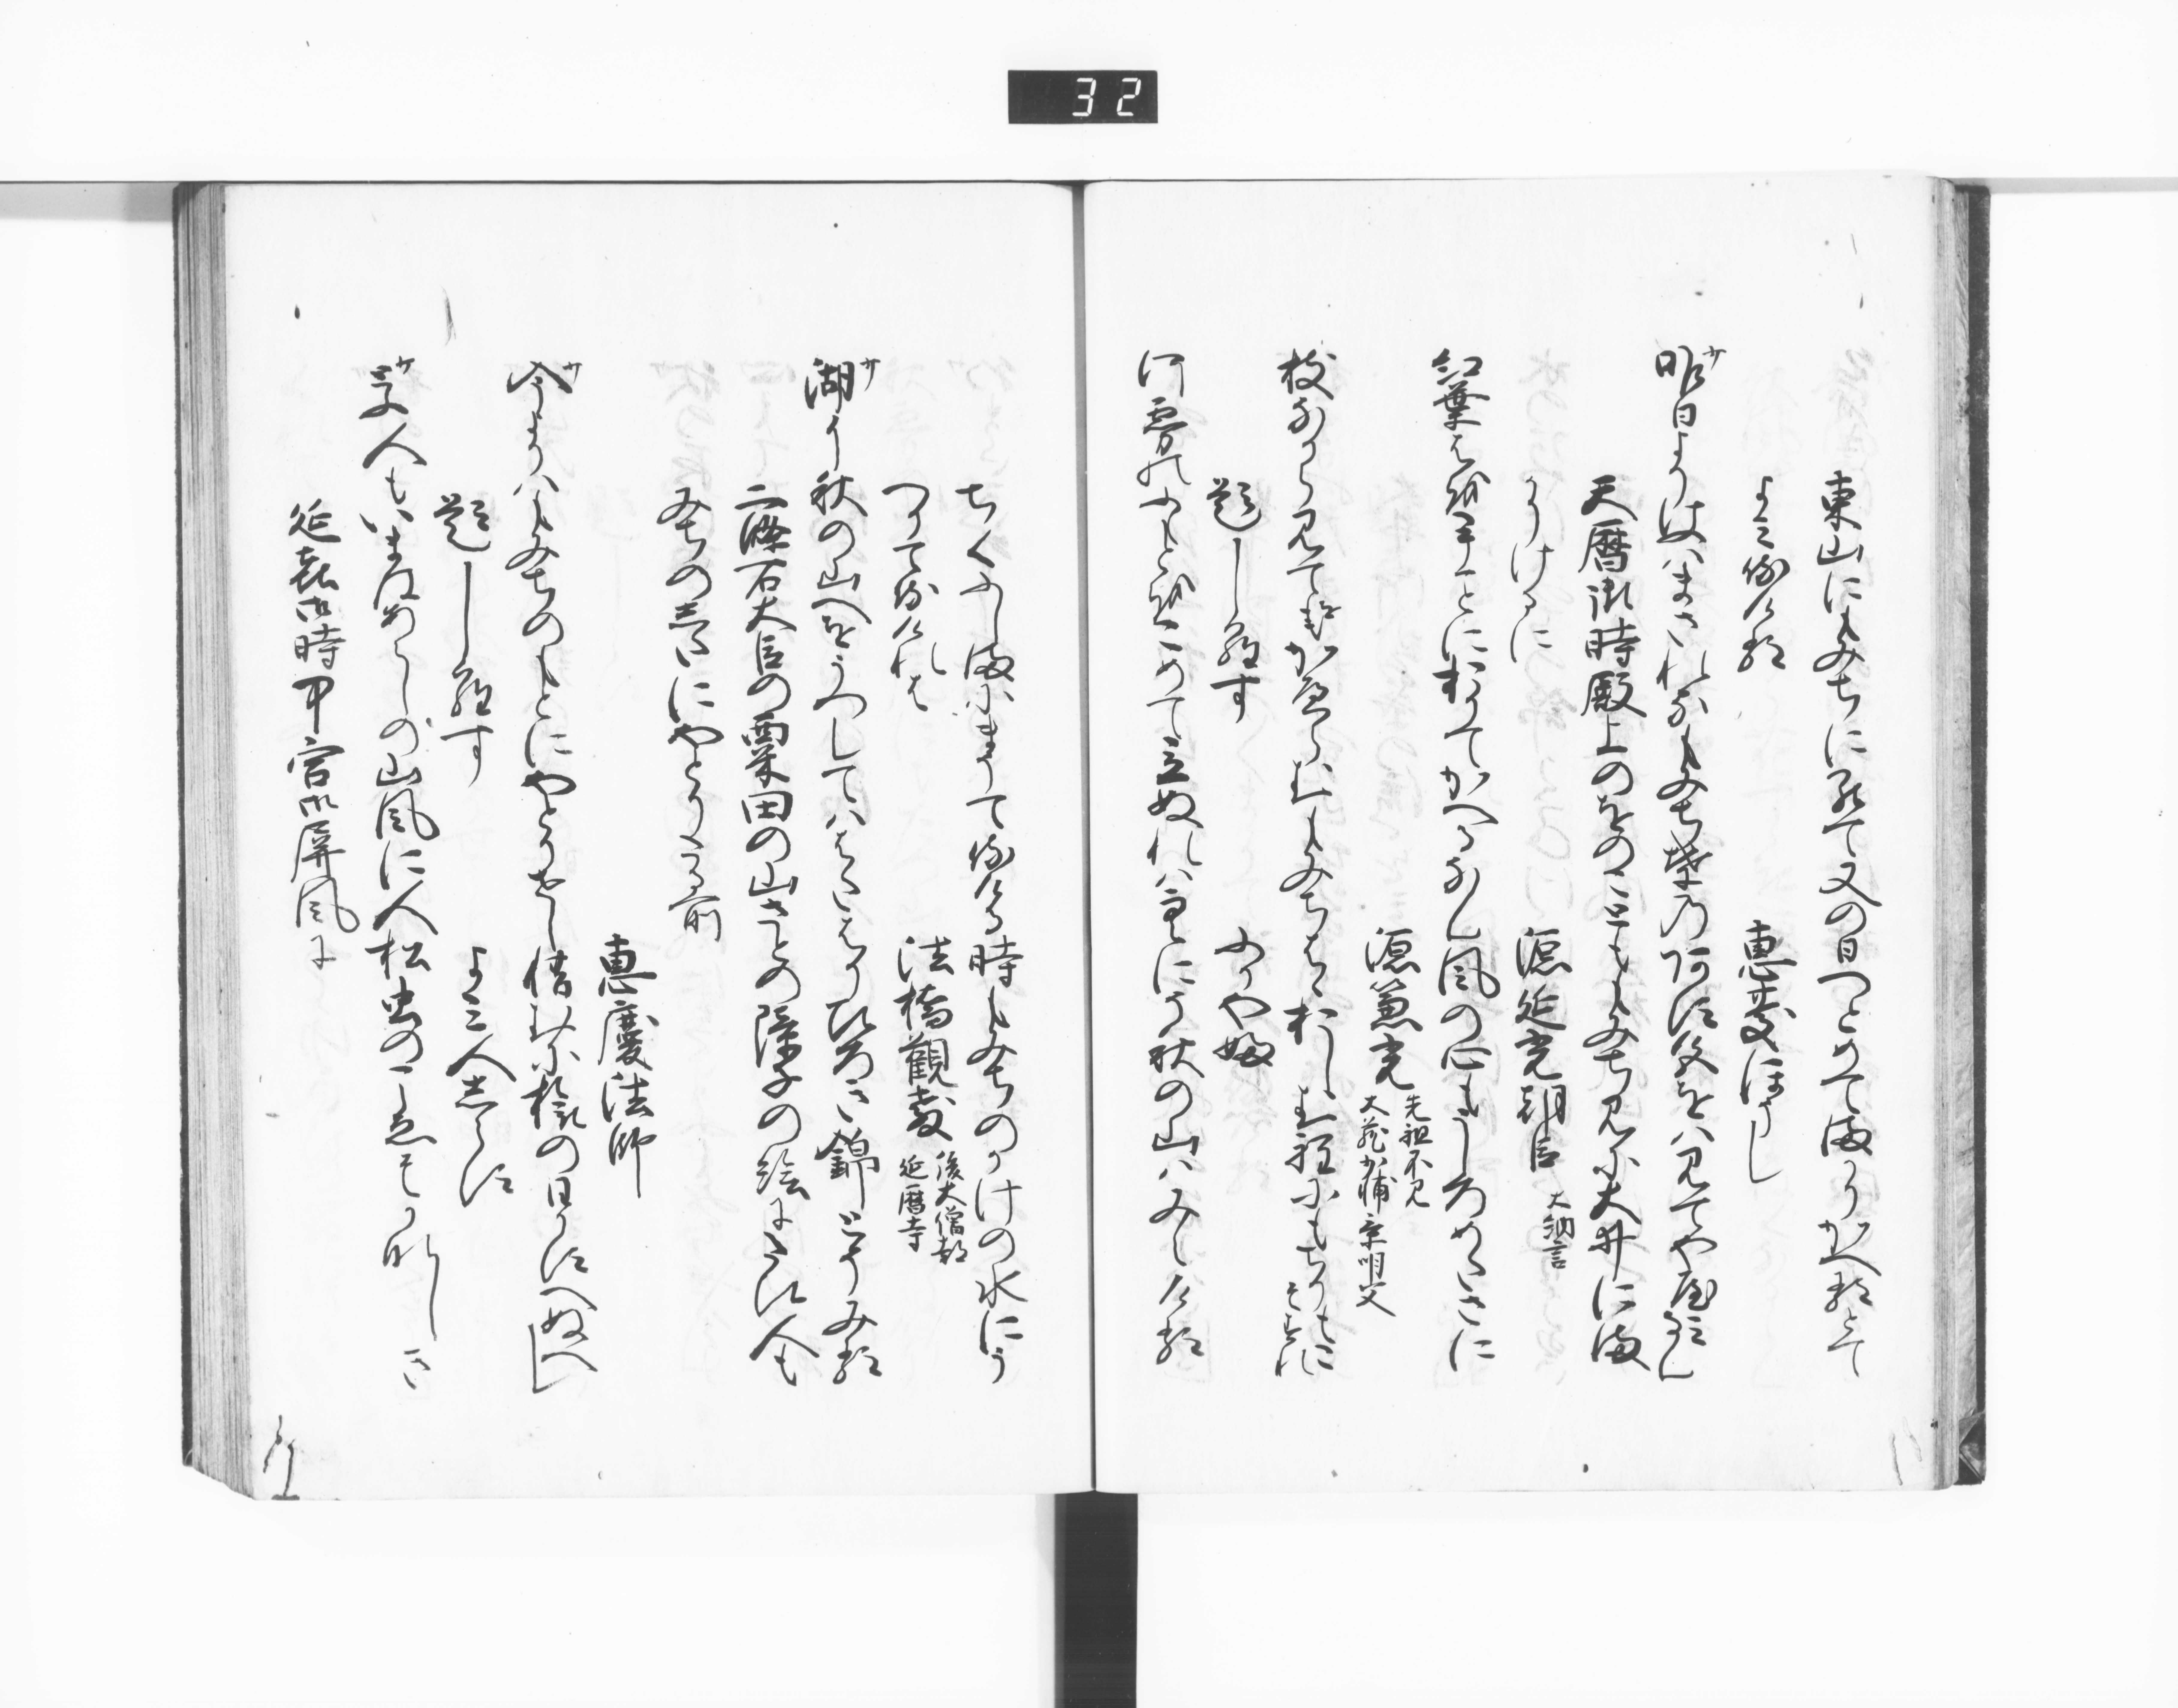 32
東山にもみちにまかりて又の日つとめてまかりかへるとて
よみ侍ける
恵慶ほうし
昨日よりけふはまされるもみち葉のあすの色をは見てややみなん
天暦御時殿上のをのこともゝみち見に大井にま
かりけるに
源延光朝臣
大納言
紅葉はを手ことにおりてかへりなん風の心もうしろめたきに
源兼光
先祖不見
大蔵少輔
枝なから見てをかへらんもみちはゝおらんほとにもちりもこそすれ
題しらす
ふかやふ
河霧のふもとをこめて立ぬれは空にそ秋の山はみえける
ちくふしまにまうて侍ける時もみちのかけの水にう
つりて侍けれは
法橋観教
後大僧都
延暦寺
サ
湖に秋の山へをうつしてははたはりひろき錦とそみる
二条右大臣の粟田の山さとの障子の絵にたひ人も
みちのしたにやとりたる所
恵慶法師
サ
今よりはもみちのもとにやとりせし惜むに旅の日かすへぬへし
題しらす
よみ人しらす
サ
とふ人もいまはあらしの山風に人松虫のこゑそかなしき
延喜御時中宮御屏風に